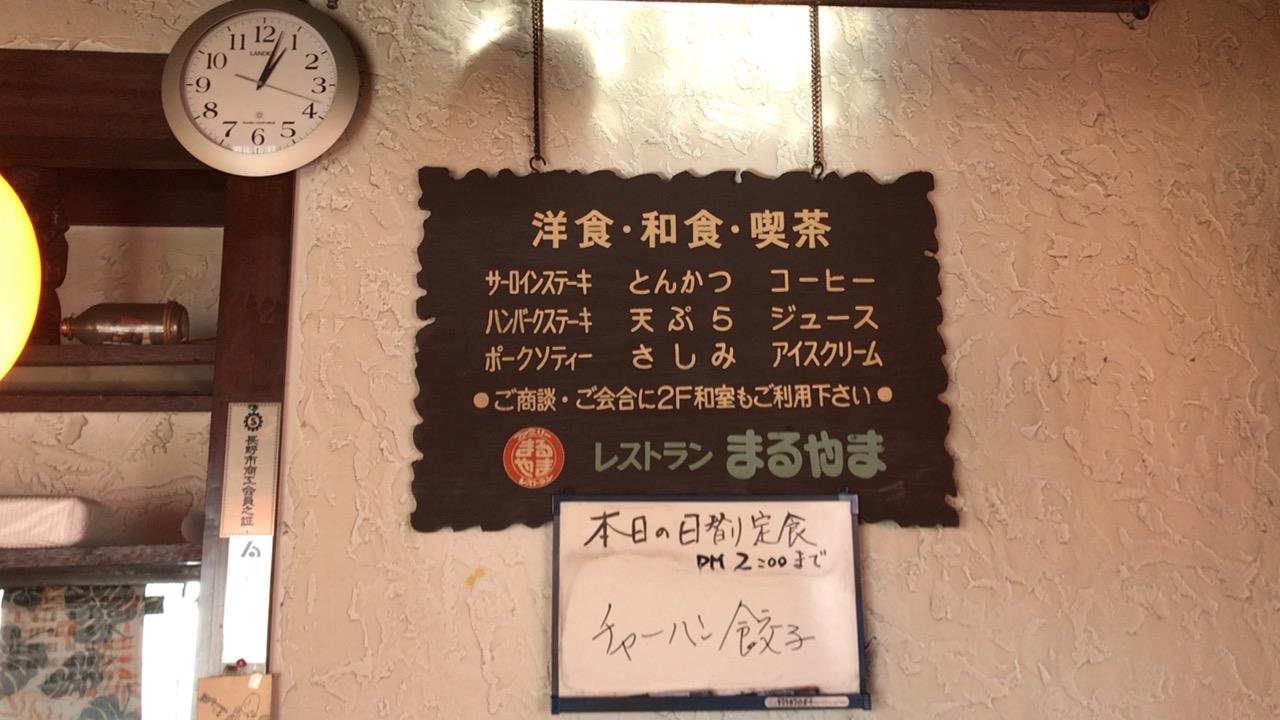 LANDEX
12
11 1
10 2
9 3
8 4
7 5
6
洋食・和食・喫茶
サーロインステーキ とんかつ コーヒー
ハンバークステーキ 天ぷら ジュース
ポークソティー さしみ アイスクリーム
●ご商談・ご会合に2F和室もご利用下さい●
ファミリー
まる
やま
レストラン
レストラン まるやま
本日の日替り定食
PM 2:00まで
チャーハン 餃子
5
長野市商工会員之証